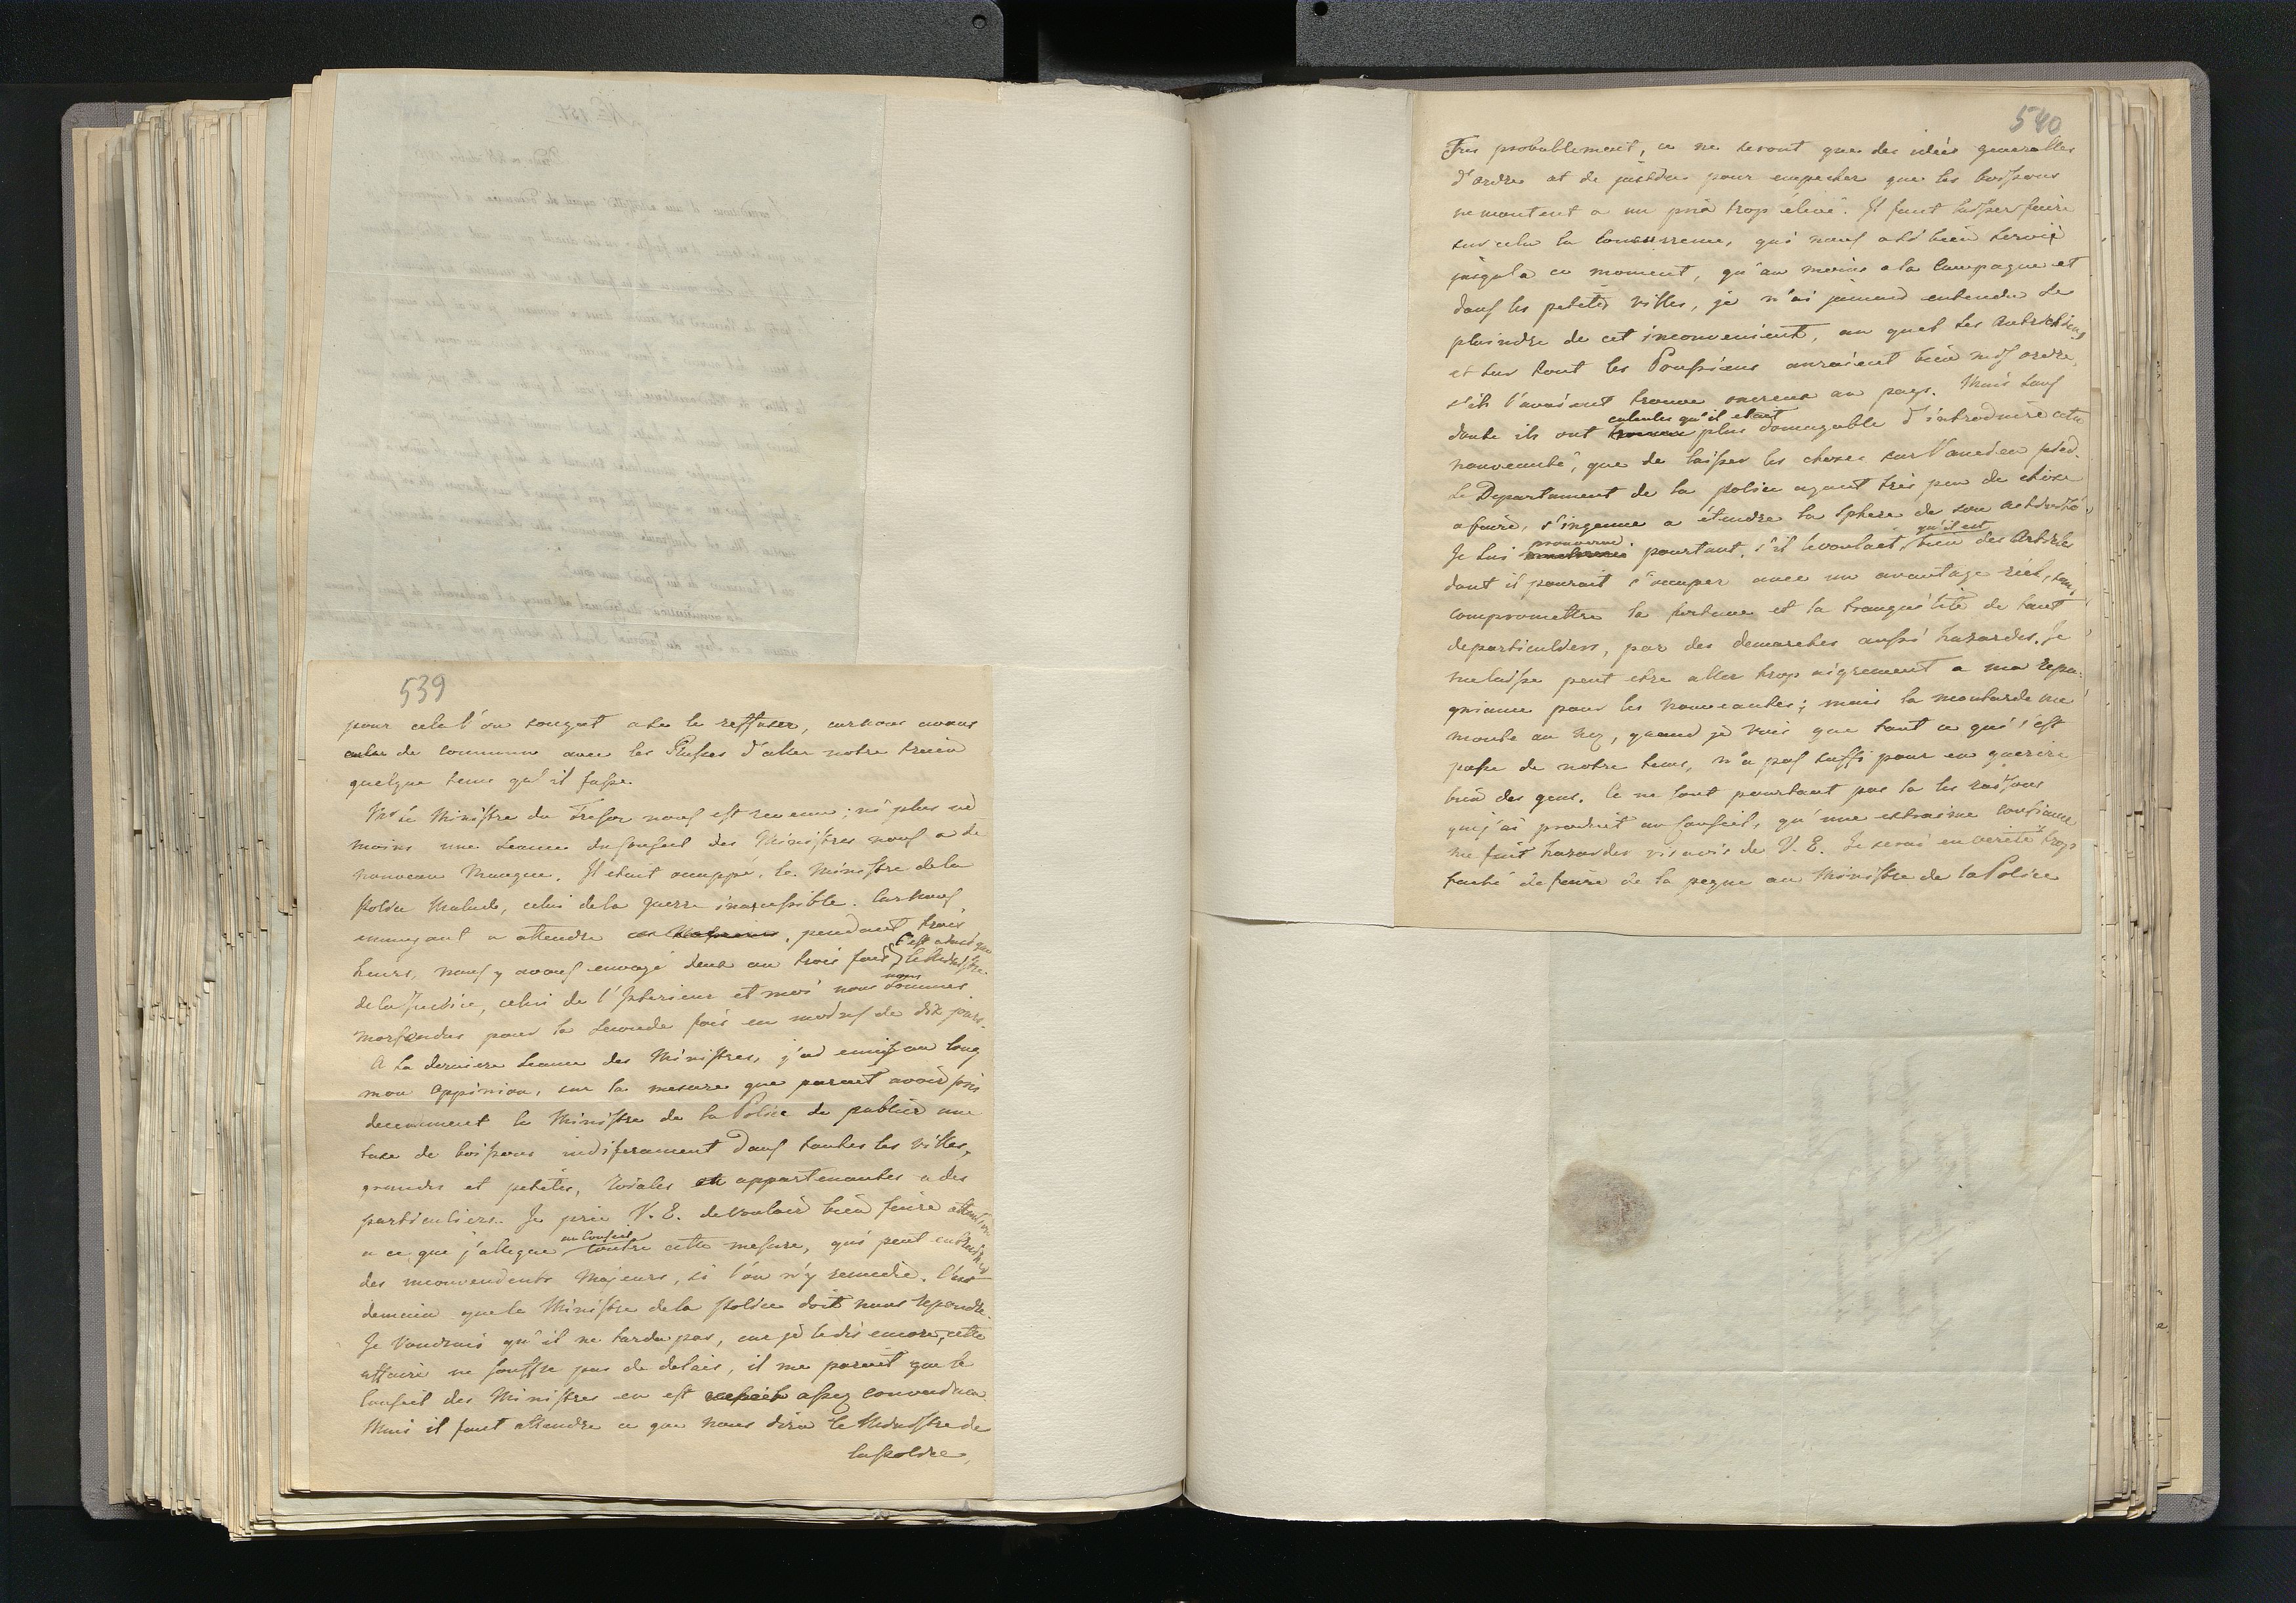 539
pour cela l'on songat a se le reffuser, car nous avons
de commune avec les Russes d'aller notre train
quelque tems qu'il fasse.
Mr le Ministre du Tresor nous est revenu; ni plus ni
moins une seance du Conseil des Ministres nous a de
nouveau manque. Il etait occuppé, le Ministre de la
Police malade, celui de la guerre inaccessible. Car nous
ennuyant a attendre pendant trois
heurs, nous y avons envoyé deux ou trois fois, c'est ainsi que le Ministre
de la Justice, celui de l'Interieur et moi nous nous sommes
morfondus pour la seconde fois en moins de dix jours.
A la derniere seance des Ministres, j'ai emis au long
mon oppinion, sur la mesure que parait avoir pris
decemment le Ministre de la Police de publier une
taxe de boissons indiferament dans toutes les villes,
grandes et petites, roiales et appartenantes a des
particuliers. Je prie V. E. de vouloir bien faire attention
a ce que j'allegue au Conseil contre cette mesure, qui peut entrainer
des inconvenients majeurs, si l'on n'y remedie. C'est
demain que le Ministre de la Police doit nous repondre.
Je voudrais qu'il ne tarda pas, car je le dis encore, cette
affaire ne souffre pas de delais, il me parait que le
Conseil des Ministres en est assez convaincu.
Mais il faut attendre ce que nous dira le Ministre de
la Police,
540
Tres probablement, ce ne seront que des idées generalles
d'ordre et de justice pour empecher que les boissons
ne montent a un prix trop elevé. Il faut laisser faire
sur cela la concurrence, qui nous a si bien servie
jusqu'a ce moment, qu'au moins a la Campagne et
dans les petites villes, je n'ai jamais entendu se
plaindre de cet inconvenient, au quel les Autrichiens
et sur tout les Prussiens auraient bien mis ordre,
s'ils l'avaient trouvé onereux au pays. Mais sans
doute ils ont calculer qu'il etait plus domagable d'introduire cette
nouveauté, que de laisser les choses sur l'ancien pied.
Le Departament de la police ayant tres peu de chose
a faire, s'ingenue a étendre la sphere de son activité.
Je lui prouverai pourtant, s'il le voulait, qu'il est bien des Articles
dont il pourait s'occuper avec un avantage réel, sans
compromettre la fortune et la tranquilité de tant
de particuliers, par des demarches aussi hazardés. Je
me laisse peut etre aller trop aigrement a ma repu-
gniance pour les nouveautés; mais la moutarde me
monte au nez, quand je vois que tout ce qui s'est
passe de notre tems, n'a pas suffi pour en guerire
bien des gens. Ce ne sont pourtant pas la les raisons
que j'ai produit au Conseil, qu'une extreme confiance
me fait hazarder vis avis de V. E. Je serai en verité trop
faché de faire de la peyne au Ministre de la Police